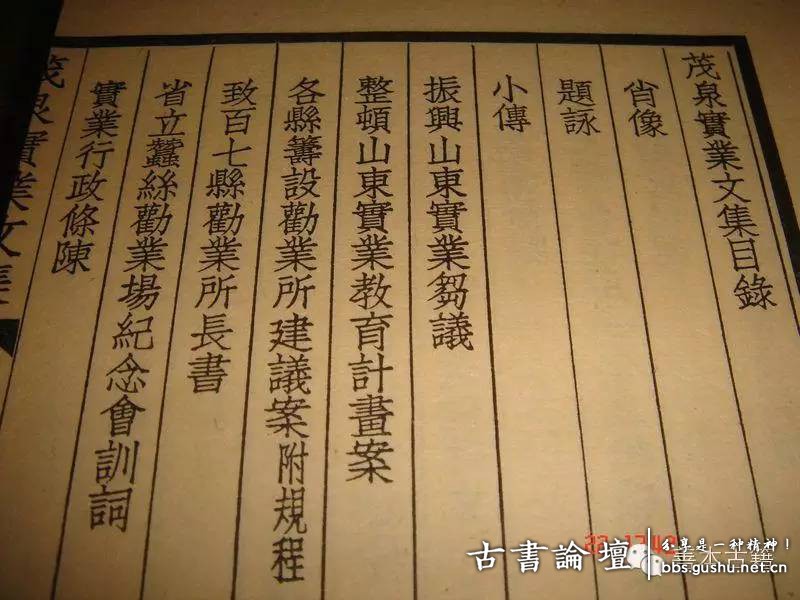 茂泉實業文集目錄
肖像
題詠
小傳
振興山東實業芻議
整頓山東實業教育計畫案
各縣籌設勸業所建議案附規程
致百七縣勸業所長書
省立蠶絲勸業場紀念會訓詞
實業行政條陳
茂泉實業文集
古書論壇
分享是一种精神！
善本古籍
bbs.gushu.net.cn